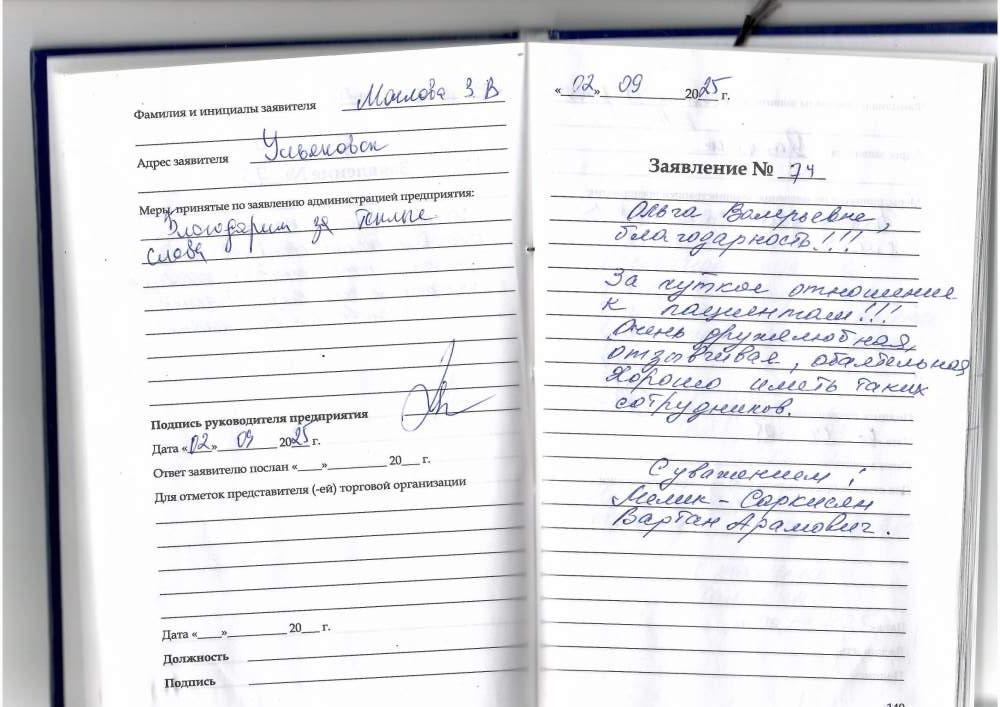 Фамилия и инициалы заявителя Маслова З. В
Адрес заявителя Ульяновск
Меры, принятые по заявлению администрацией предприятия:
Благодарим за теплые
слова
Подпись руководителя предприятия
Дата «02» 09 2025 г.
Ответ заявителю послан «___»__________ 20___ г.
Для отметок представителя (-ей) торговой организации
Дата «____»__________ 20___ г.
Должность
Подпись
«02» 09 2025 г.
Заявление № 74
Ольга Валерьевне,
благодарность!!!
За чуткое отношение
к пациентам!!!
Очень дружелюбная,
отзывчивая, обаятельная
Хорошо иметь таких
сотрудников.
С уважением:
Мелик-Саркисян
Вартан Арамович.